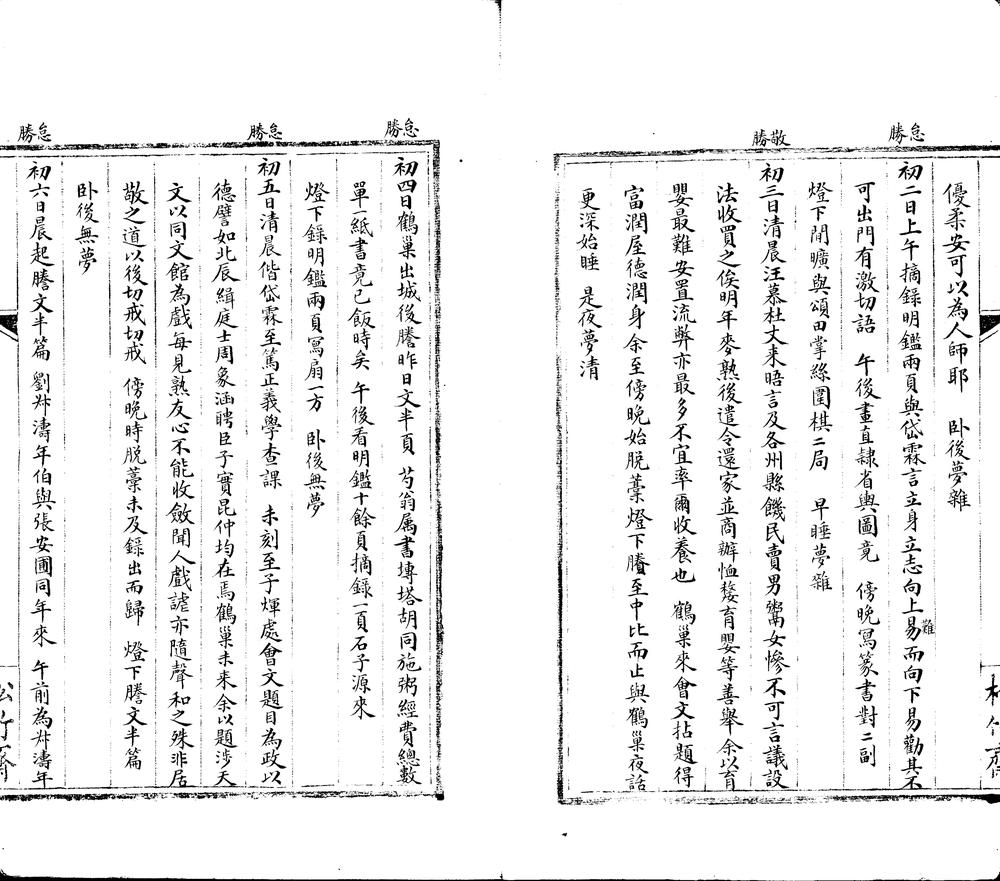 優柔安可以為人師耶　卧後夢雜
怠勝
初二日上午摘錄明鑑兩頁與岱霖言立身立志向上易難而向下易勸其不
可出門有激切語　午後畫直隸省輿圖竟　傍晚寫篆書對二副
燈下閒曠與頌田掌絲圍棋二局　早睡夢雜
敬勝
初三日清晨汪慕杜丈来晤言及各州縣饑民賣男鬻女慘不可言議設
法收買之俟明年麥熟後遣令還家並商辦恤嫠育嬰等善舉余以育
嬰最難安置流弊亦最多不宜率爾收養也　鶴巢來會文拈題得
富潤屋德潤身余至傍晚始脱藁燈下謄至中比而止與鶴巢夜話
更深始睡　是夜夢清
怠勝
初四日鶴巢出城後謄昨日文半頁　芍翁属書塼塔胡同施粥經費總數
單一紙書竟已飯時矣　午後看明鑑十餘頁摘錄一頁石子源來
燈下錄明鑑兩頁寫扇一方　卧後無夢
怠勝
初五日清晨偕岱霖至篤正義學查課　未刻至子煇處會文題目為政以
德譬如北辰緝庭士周象涵聘臣子實昆仲均在焉鶴巢未来余以題涉天
文以同文館為戲每見熟友心不能收斂聞人戲謔亦隨聲和之殊非居
敬之道以後切戒切戒　傍晚時脱藁未及錄出而歸　燈下謄文半篇
卧後無夢
怠勝
初六日晨起謄文半篇　劉叔濤年伯與張安圃同年來　午前為叔濤年
松竹齋